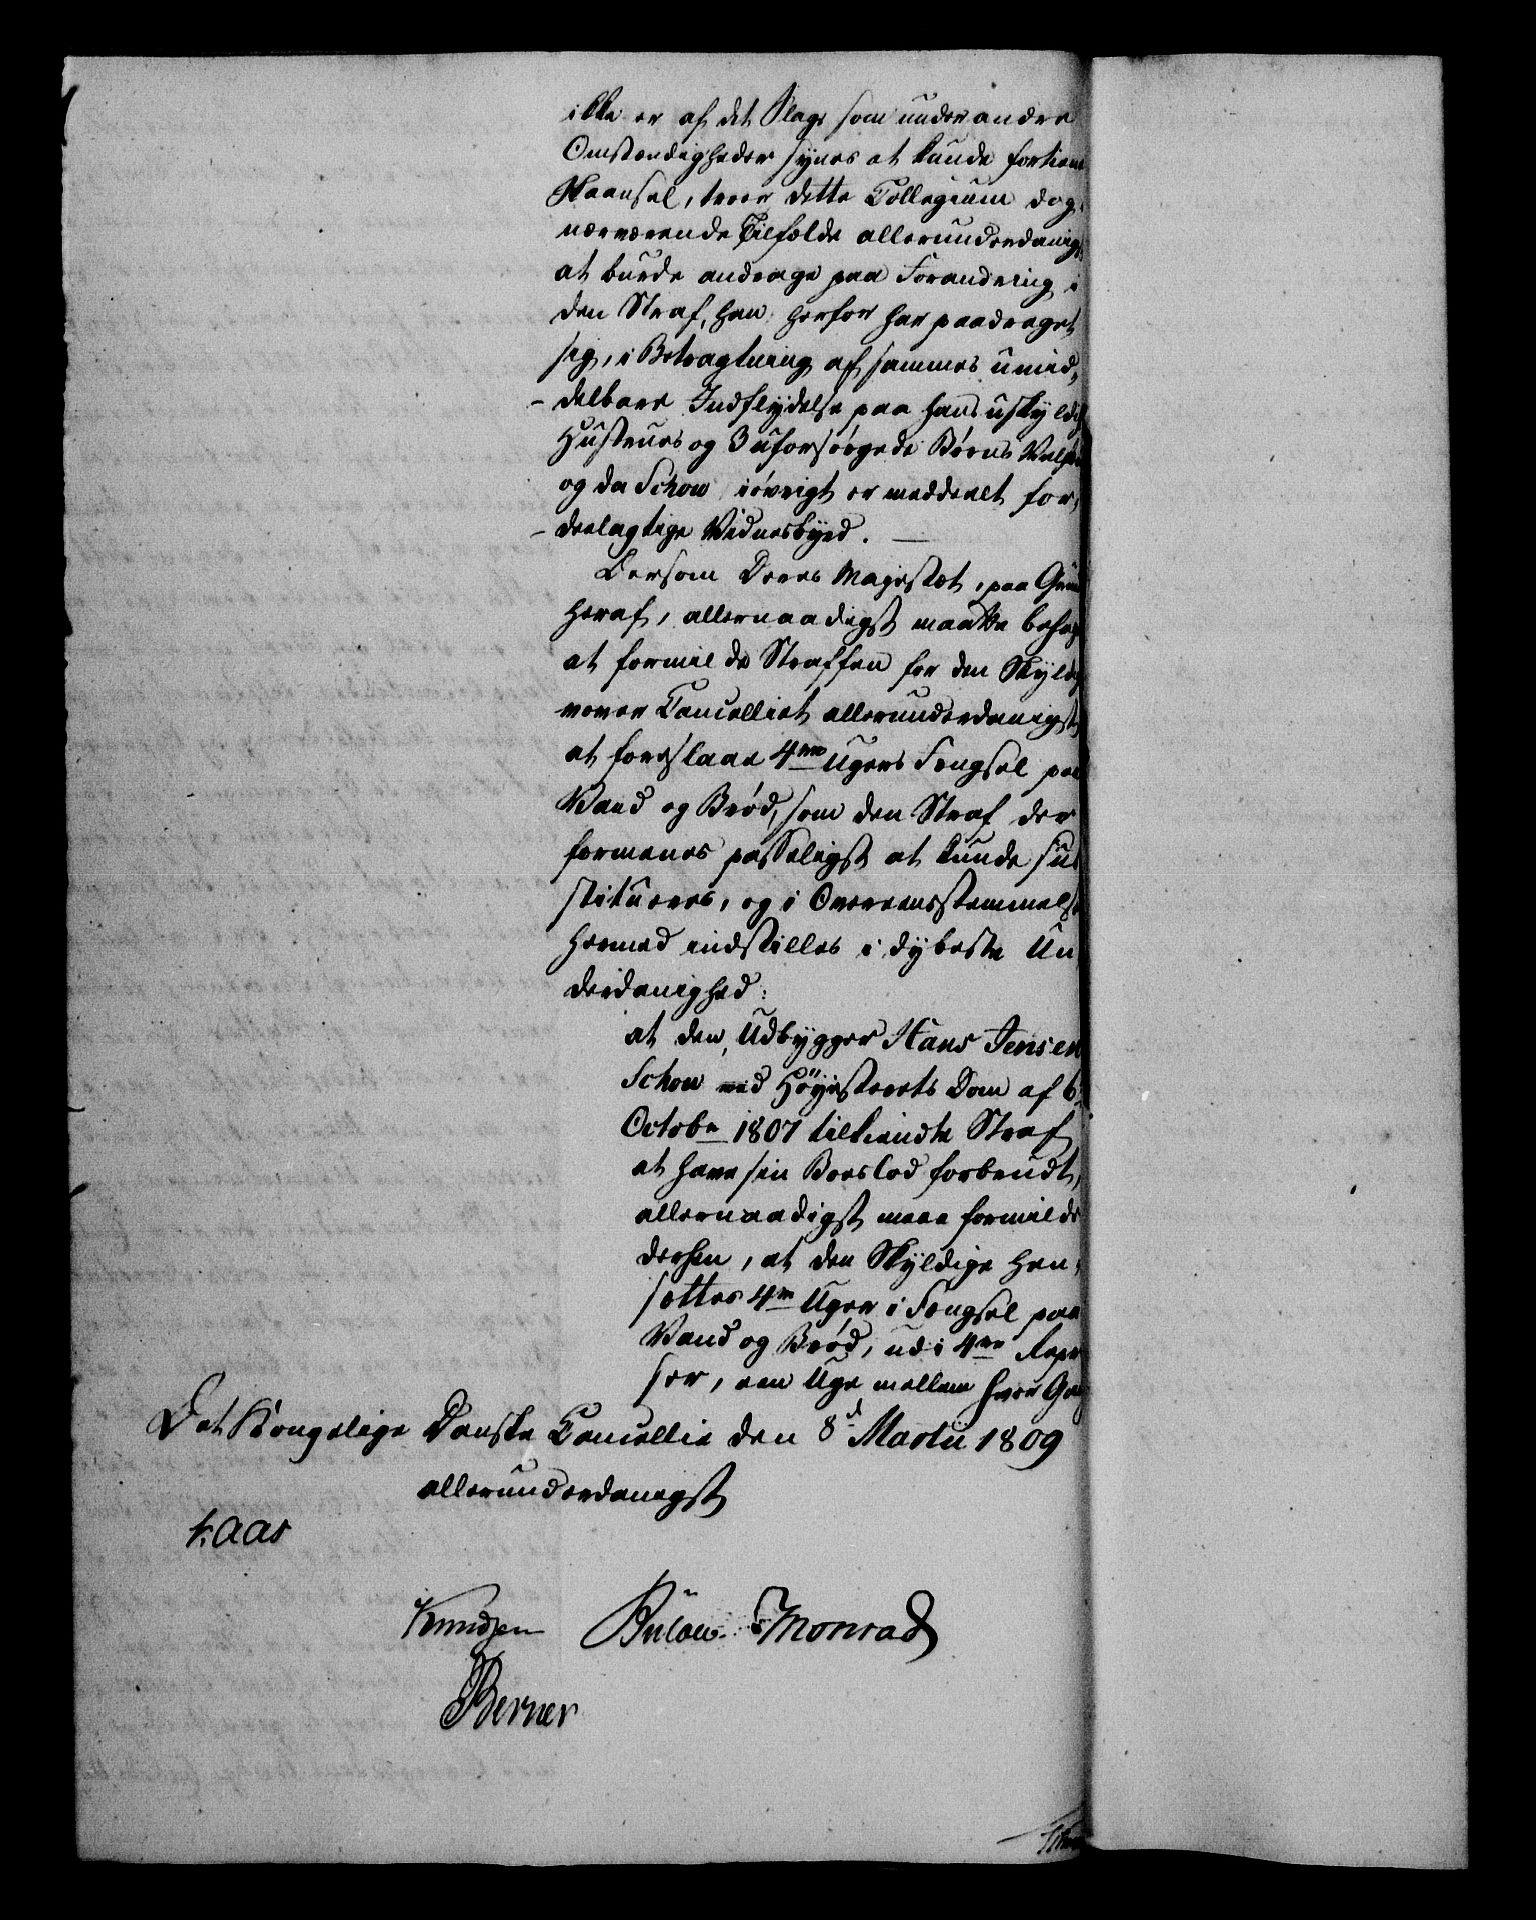 ikke er af det Slags som under andre
Omstændigheder synes at kunde fortiene
Skaansel, troer dette Collegium dog i
nærværende Tilfælde allerunderdanigst
at burde andrage paa Forandring i
den Straf, han herfor har paadraget
sig, i Betragtning af sammes umid-
delbare Indflydelse paa hans uskyldige
Hustrues og 3 uforsørgede Børns Velfærd
og da Schow iøvrigt er meddeelt for-
deelagtige Vidnesbyrd.
Dersom Deres Majestæt, paa Grund
heraf, allernaadigst maatte behage
at formilde Straffen for den Skyldige
vover Cancelliet allerunderdanigst
at foreslaae 4re Ugers Fængsel paa
Vand og Brød, som den Straf der
formenes passeligst at kunde sub
stitueres, og i Overeensstemmelse
hermed indstilles i dybeste Un
derdanighed:
at den, Udbygger Hans Jensen
Schow ved Høyesterets Dom af 6
Octobr 1807 tilkiendte Straf
at have sin Boeslod forbrudt,
allernaadigst maae formildes
derhen, at den Skyldige hen-
sættes 4re Uger i Fængsel paa
Vand og Brød, udi 4re Repri
ser, een Uge mellem hver Gang
Det Kongelige Danske Cancellie den 8d Martii 1809
allerunderdanigst
Kaas
Knudsen Bülow Monrad
Berner